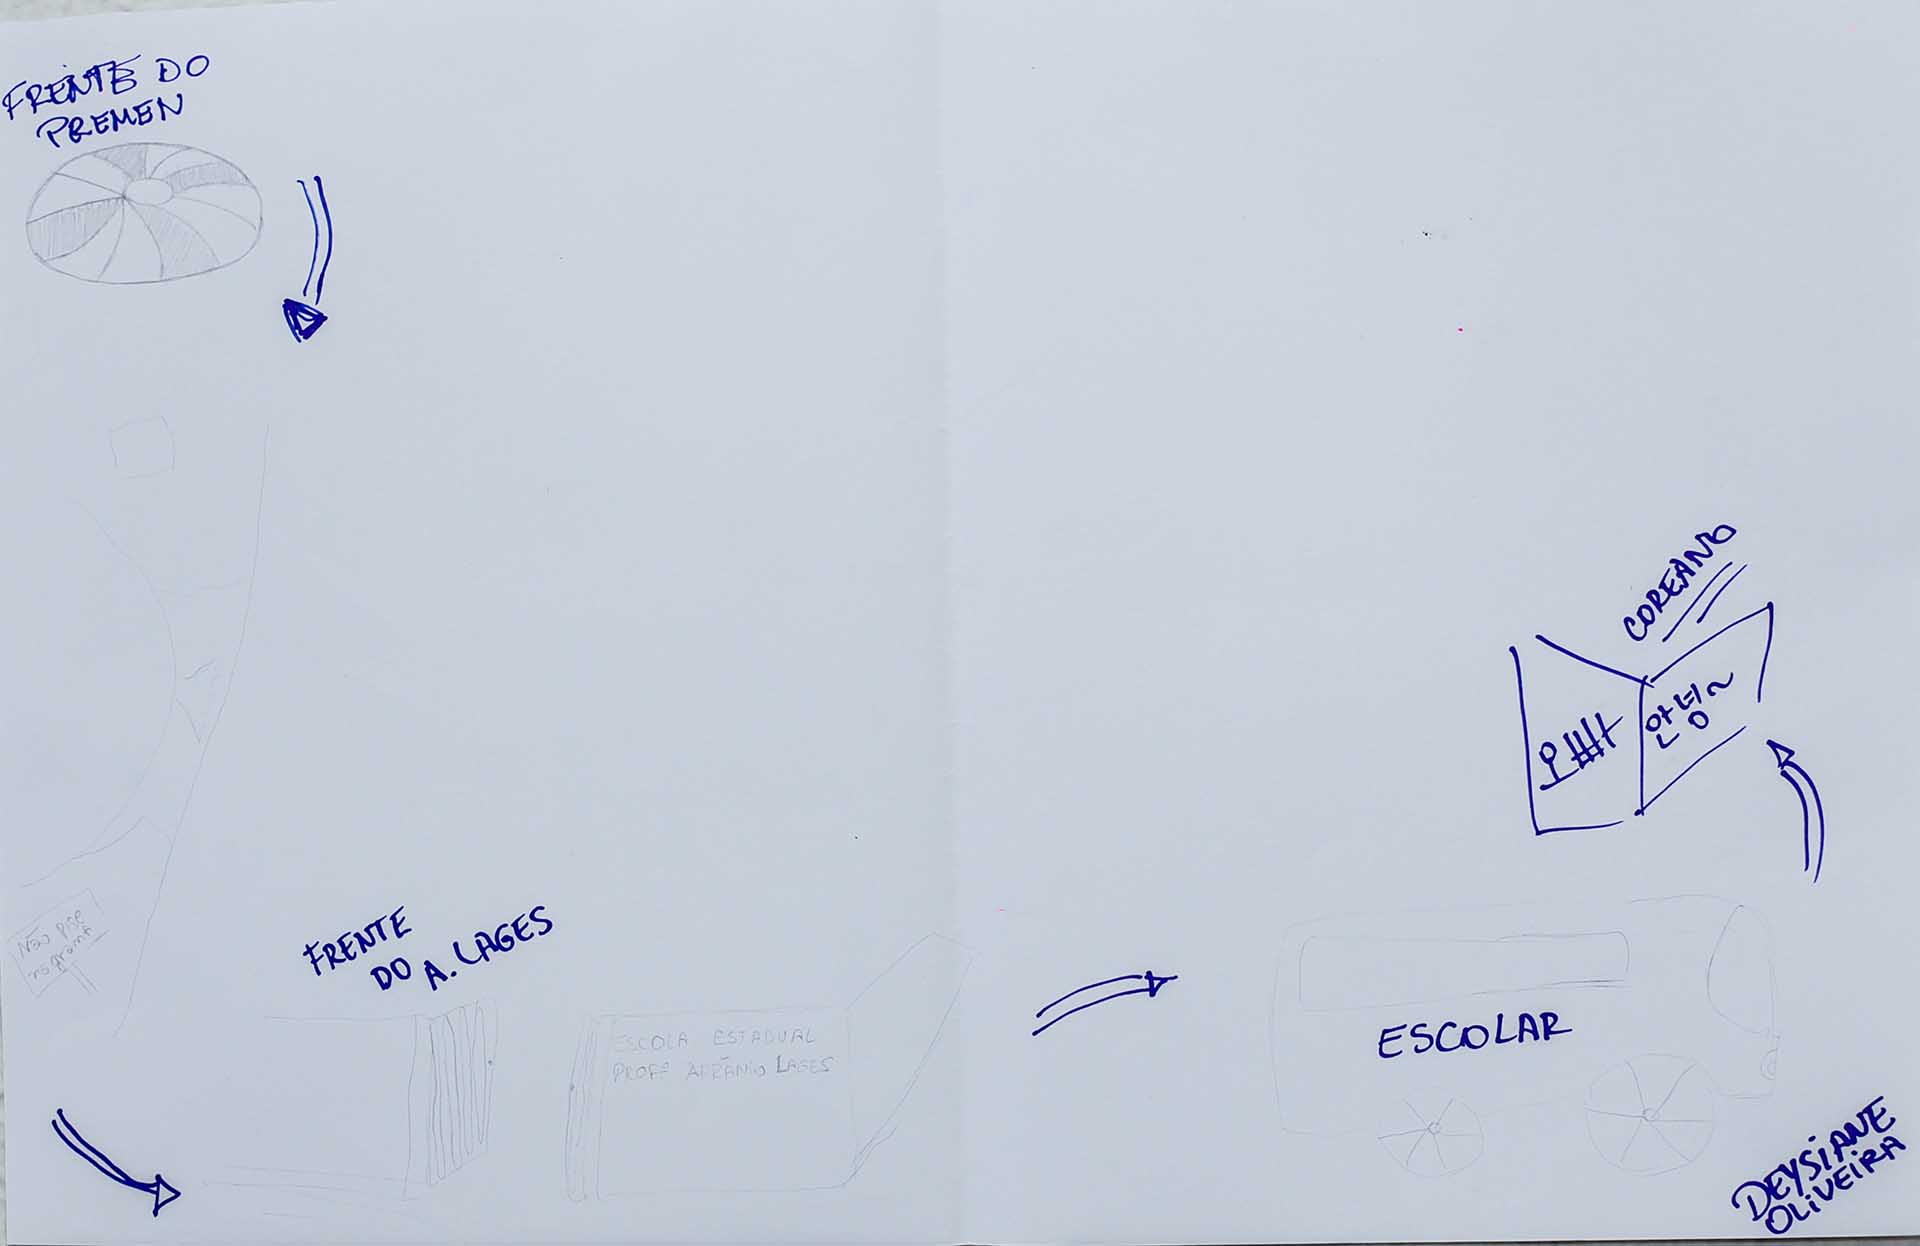 FRENTE DO
PREMEN
NÃO PISE
na grama
FRENTE
DO A. LAGES
ESCOLA ESTADUAL
PROFº AFRÂNIO LAGES
ESCOLAR
COREANO
안녕~
DEYSIANE
OLIVEIRA